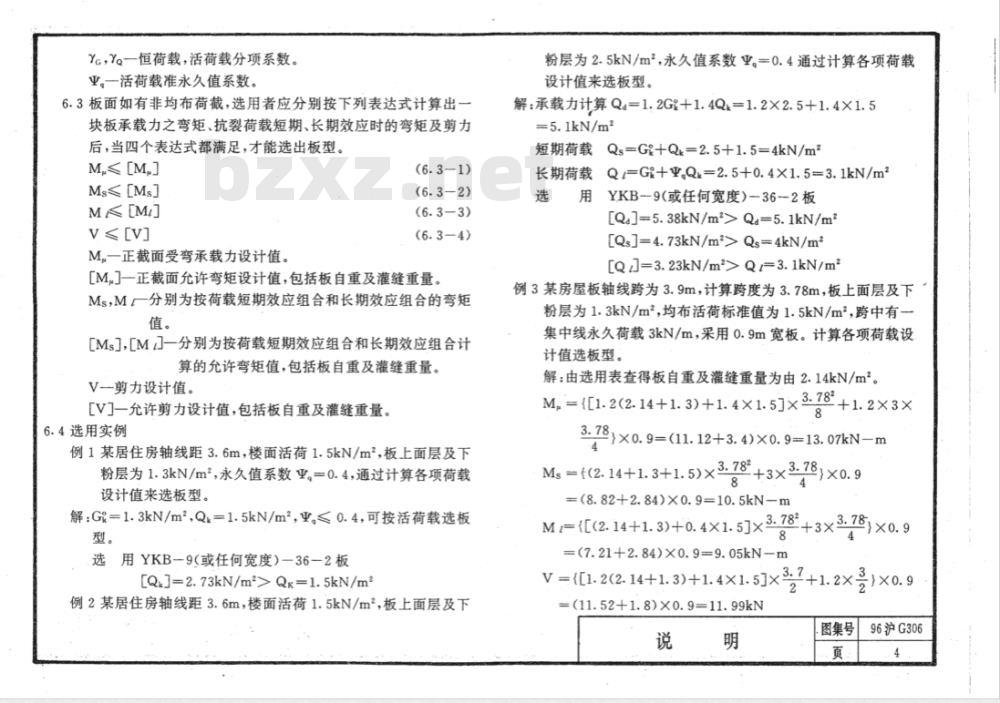 γG,γQ—恒荷载,活荷载分项系数。
Ψq—活荷载准永久值系数。
6.3 板面如有非均布荷载,选用者应分别按下列表达式计算出一
块板承载力之弯矩、抗裂荷载短期、长期效应时的弯矩及剪力
后,当四个表达式都满足,才能选出板型。
Mμ≤[Mμ] (6.3—1)
Ms≤[Ms] (6.3—2)
Ml≤[Ml] (6.3—3)
V≤[V] (6.3—4)
Mμ—正截面受弯承载力设计值。
[Mμ]—正截面允许弯矩设计值,包括板自重及灌缝重量。
Ms,Ml—分别为按荷载短期效应组合和长期效应组合的弯矩
值。
[Ms],[Ml]—分别为按荷载短期效应组合和长期效应组合计
算的允许弯矩值,包括板自重及灌缝重量。
V—剪力设计值。
[V]—允许剪力设计值,包括板自重及灌缝重量。
6.4 选用实例
例1 某居住房轴线距 3.6m,楼面活荷 1.5kN/m²,板上面层及下
粉层为 1.3kN/m²,永久值系数 Ψq=0.4,通过计算各项荷载
设计值来选板型。
解:G⁰k=1.3kN/m²,Qk=1.5kN/m²,Ψq≤0.4,可按活荷载选板
型。
选 用 YKB—9(或任何宽度)—36—2 板
[Qk]=2.73kN/m²>QK=1.5kN/m²
例2 某居住房轴线距 3.6m,楼面活荷 1.5kN/m²,板上面层及下
粉层为 2.5kN/m²,永久值系数 Ψq=0.4 通过计算各项荷载
设计值来选板型。
解:承载力计算 Qd=1.2G⁰k+1.4Qk=1.2×2.5+1.4×1.5
=5.1kN/m²
短期荷载 Qs=G⁰k+Qk=2.5+1.5=4kN/m²
长期荷载 Ql=G⁰k+ΨqQk=2.5+0.4×1.5=3.1kN/m²
选 用 YKB—9(或任何宽度)—36—2 板
[Qd]=5.38kN/m²>Qd=5.1kN/m²
[Qs]=4.73kN/m²>Qs=4kN/m²
[Ql]=3.23kN/m²>Ql=3.1kN/m²
例3 某房屋板轴线跨为 3.9m,计算跨度为 3.78m,板上面层及下
粉层为 1.3kN/m²,均布活荷标准值为 1.5kN/m²,跨中有一
集中线永久荷载 3kN/m,采用 0.9m 宽板。计算各项荷载设
计值选板型。
解:由选用表查得板自重及灌缝重量为由 2.14kN/m²。
Mμ={[1.2(2.14+1.3)+1.4×1.5]×3.78²/8+1.2×3×
3.78/4}×0.9=(11.12+3.4)×0.9=13.07kN—m
Ms={(2.14+1.3+1.5)×3.78²/8+3×3.78/4}×0.9
=(8.82+2.84)×0.9=10.5kN—m
Ml={[(2.14+1.3)+0.4×1.5]×3.78²/8+3×3.78/4}×0.9
=(7.21+2.84)×0.9=9.05kN—m
V={[1.2(2.14+1.3)+1.4×1.5]×3.7/2+1.2×3/2}×0.9
=(11.52+1.8)×0.9=11.99kN
说 明
图集号 96沪G306
页 4
bzxz.net